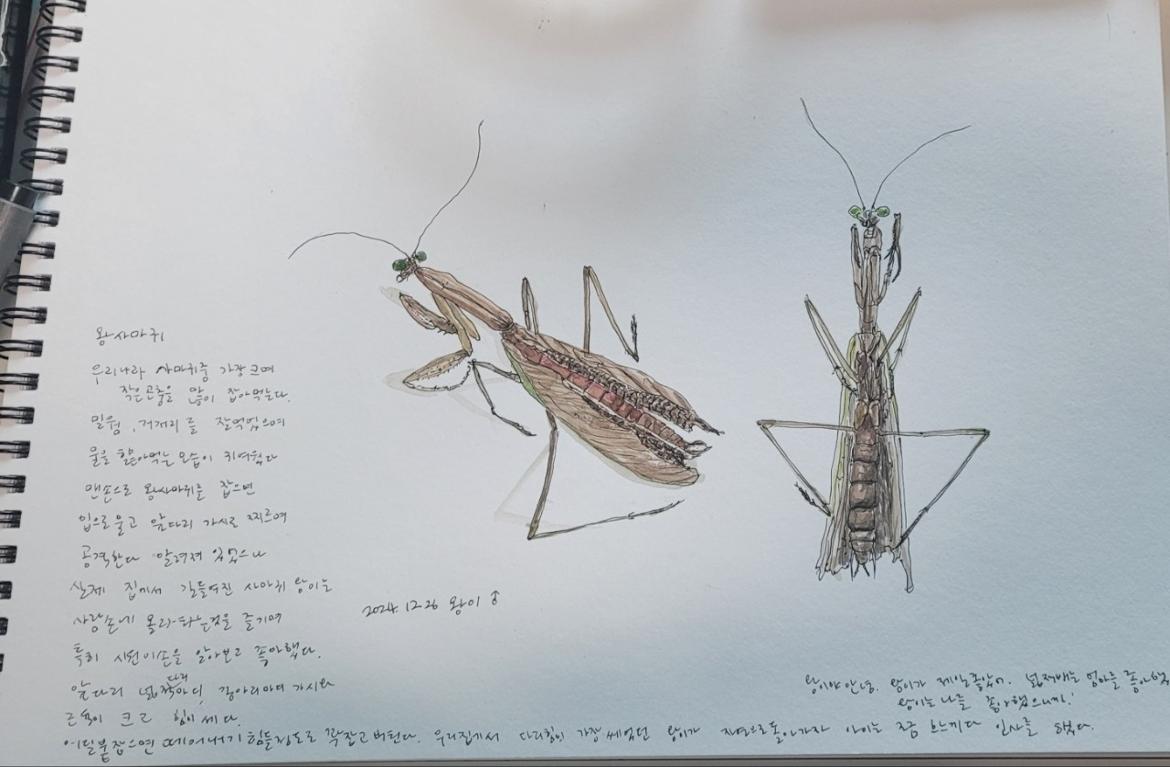 왕사마귀
우리나라 사마귀중 가장크며
작은곤충을 많이 잡아먹는다.
밀웜, 거저리를 잘먹었으며
물을 핥아먹는 모습이 귀여웠다
맨손으로 왕사마귀를 잡으면
입으로물고 앞다리 가시로 찌르며
공격한다 알려져 있었으나
실제 집에서 길들여진 사마귀 왕이는
사람손에 올라타는것을 즐기며
특히 시원이손을 알아보고 좋아했다.
앞다리 넓적다리마디, 종아리마디 가시와
근육이 크고 힘이 세다.
붙잡으면 떼어내기 힘들정도로 꽉잡고 버틴다. 우리집에서 다리힘이 가장 쎄었던 왕이가 자연으로돌아가자 아이는 조금 흐느끼다 인사를 했다.
2024.12.26 왕이 ♂
왕이야 안녕. 왕이가 제일좋았어. 넓적배는 엄마를 좋아했
왕이는 나를 좋아했으니까!